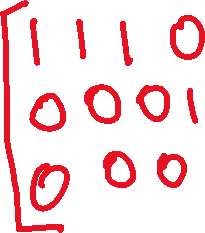 [ 1 1 1 0
0 0 0 1
0 0 0